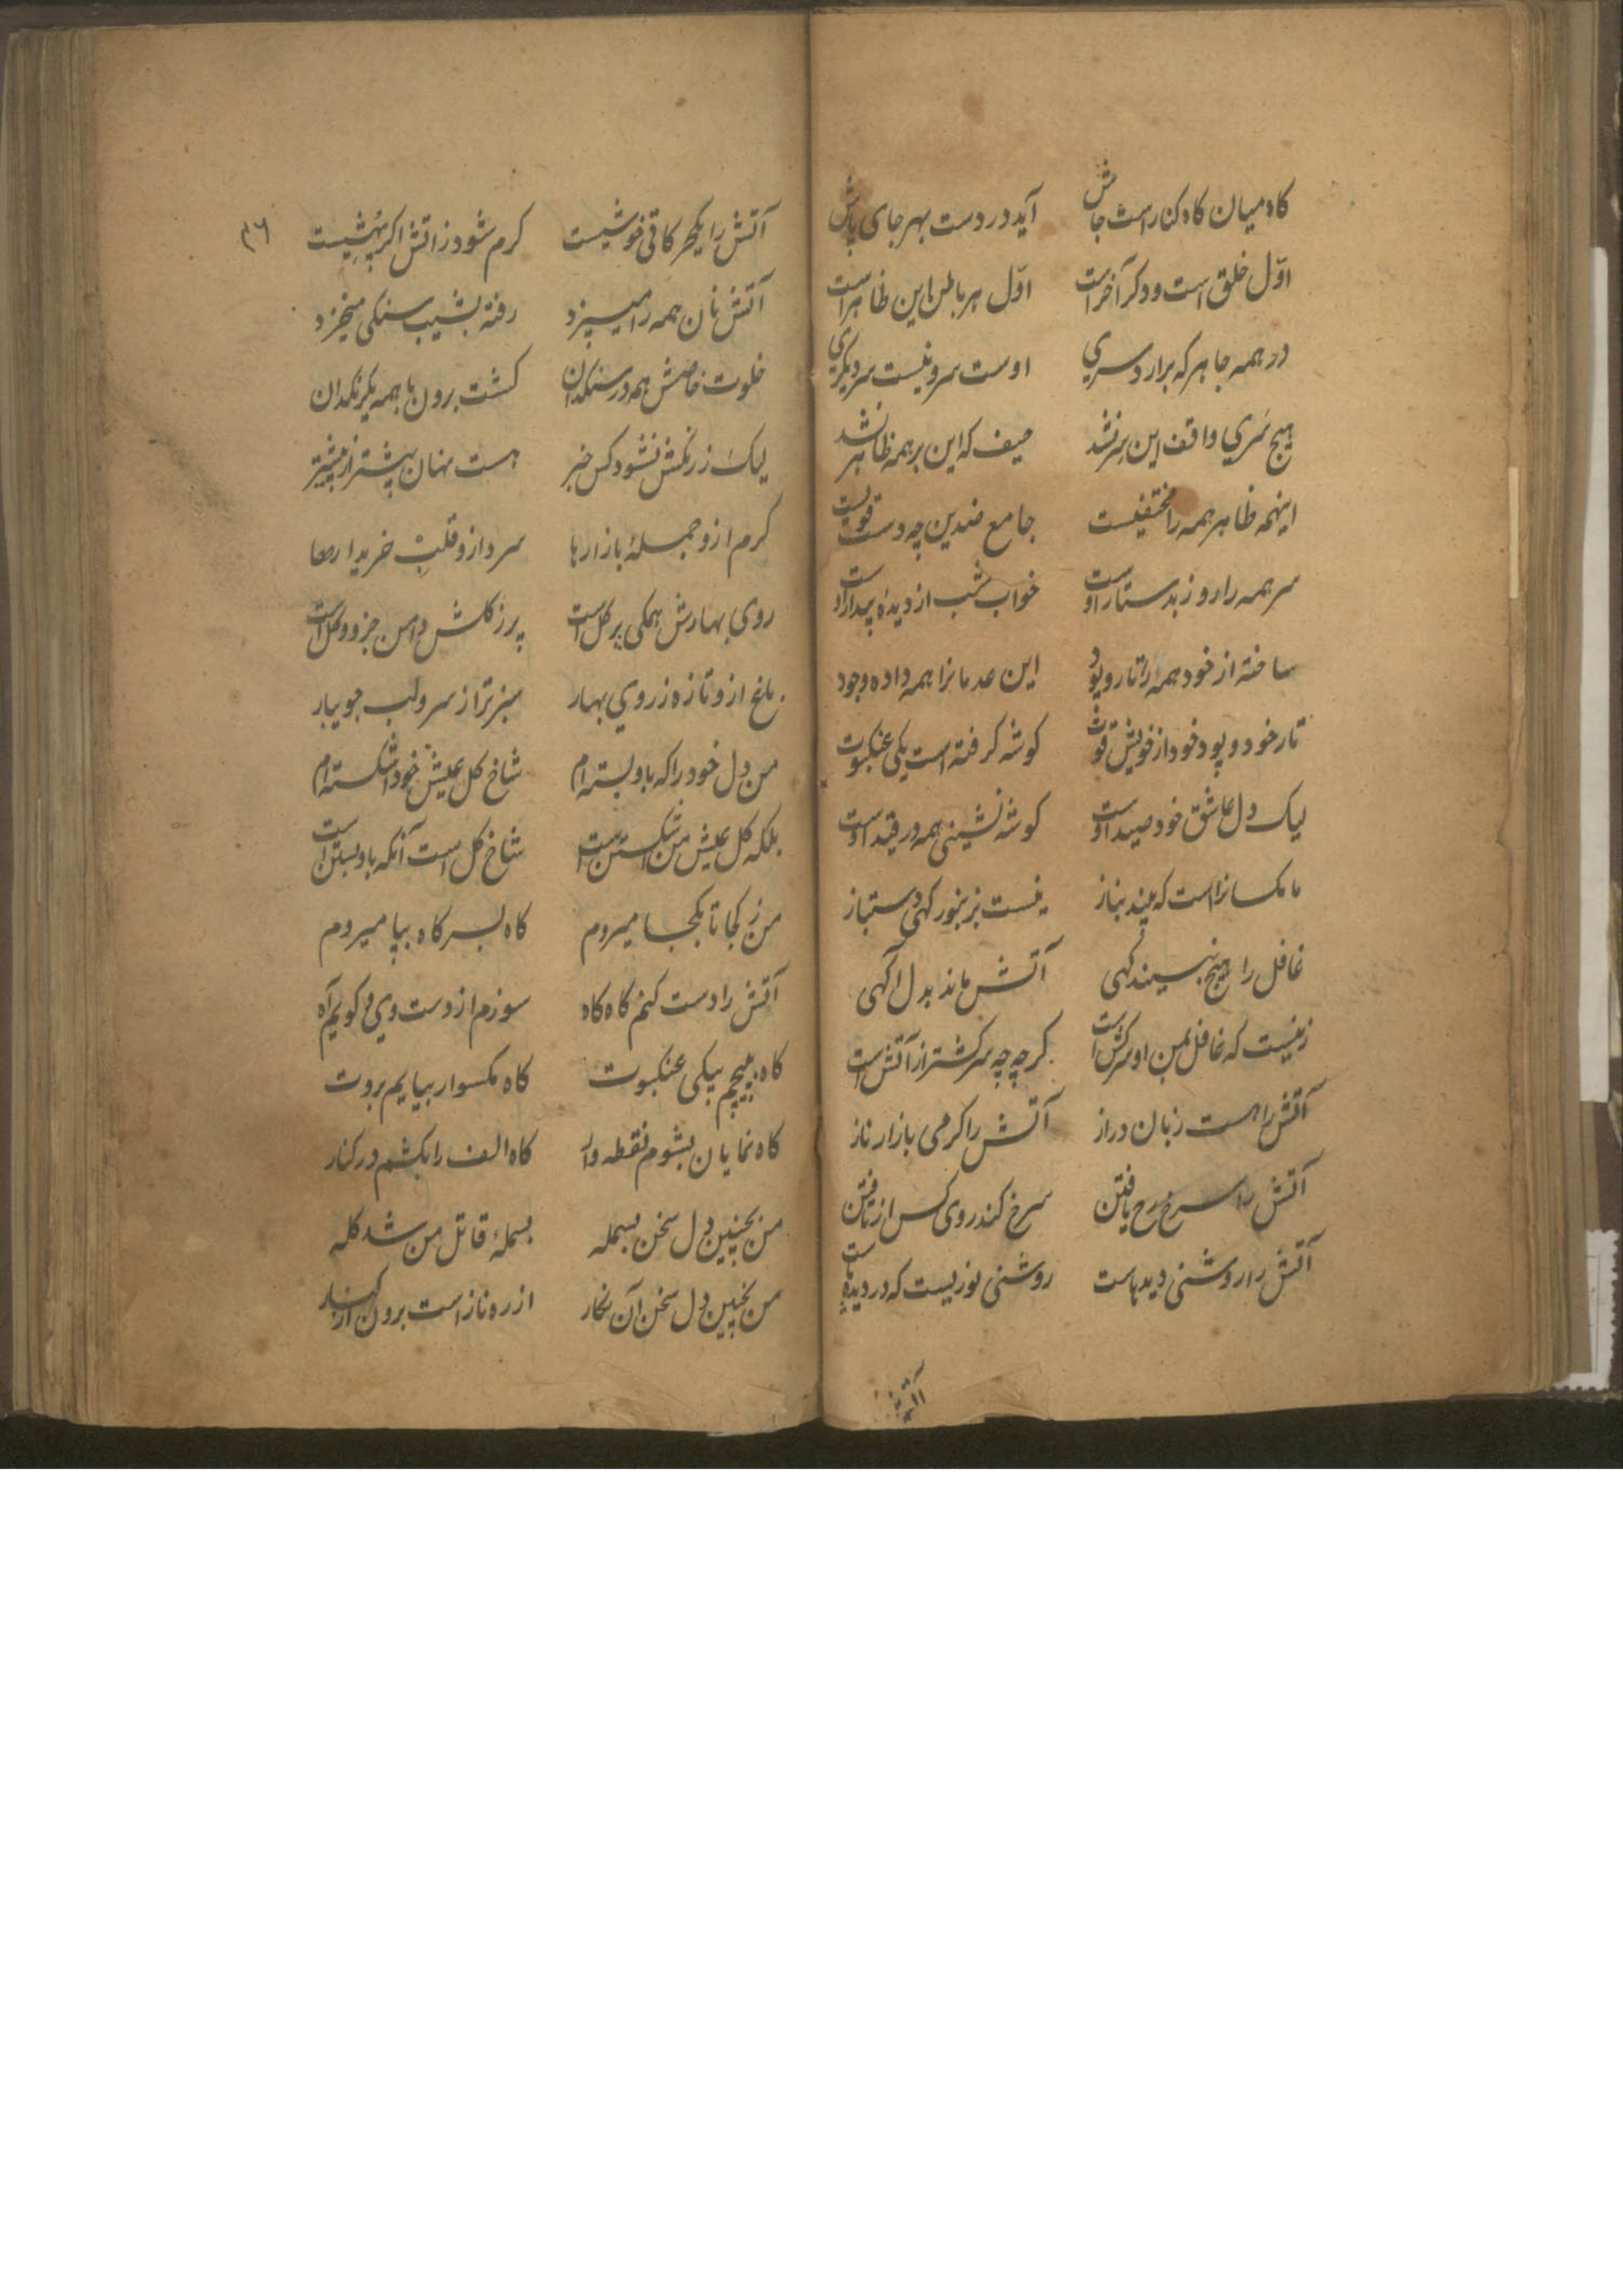 کاه میان کاه کنار است جاش آید در دست بهر جای پاش
اوّل خلق است و دکر آخر است اوّل هر باطن این ظاهر است
در همه جا هر که برارد سری اوست سر و نیست سر دیکری
هیچ سَری واقف این سِر نشد حیف که این بر همه ظاهر نشد
اینهمه ظاهر همه را مختفیست جامع ضدین چه دست قویست
سر همه را روز بدستار اوست خواب شب از دیدهٔ بیدار اوست
ساخته از خود همه را تار و پود این عدمانرا همه داده وجود
تار خود و پود خود از خویش قوت کوشه کرفته است یکی عنکبوت
لیک دل عاشق خود صید اوست کوشه نشینی همه در قید اوست
ما مکسانرا است که بیند بناز نیست بزنبور کهی دستباز
غافل را هیچ نبیند کهی آتش ماند بدل آکهی
زنیست که غافل بمن او سرکش است کرچه چه سرکشتر از آتش است
آتش را هست زبان دراز آتش را کرمی بازار ناز
آتش را سرخ رخ یافتن سرخ کند روی کس از تافتن
آتش را روشنی دیدهاست روشنی نوریست که در دیدهاست
آتش را
۳٦
آتش را یکجهر کاقی خوشیست کرم شود ز اتش اکر پهشیست
آتش نان همه را میپزد رفته بشیب سنکی میخزد
خلوت خاصش همه در سنکدان کشت برون با همه یکرنکدان
لیک ز رنکش نشود کس خبر هست نهان بیشتر از بیشتر
کرم ازو جملهٔ بازارها سرد ازو قلب خریدارها
روی بهارش همکی پر کل است پر ز کلش دامن جزو و کل است
باغ ازو تازه ز روی بهار سبزتر از سرو لب جویبار
من دل خود را که باو بسته ام شاخ کل عیش خود اشکسته ام
بلکه کل عیش من اشکستن است شاخ کل است آنکه باو بستن است
من ز کجا تا بکجا میروم کاه بسر کاه بپا میروم
آتش را دست کنم کاه کاه سوزم از دست وی و کویم آه
کاه بپیچم بیکی عنکبوت کاه مکسوار بیایم بروت
کاه نمایان بشوم نقطه وار کاه الف را بکشم در کنار
من بچنین دل سخن بسمله بسملهٔ قاتل من شد کله
من بچنین دل سخن آن نکار از ره ناز است برون از کنار